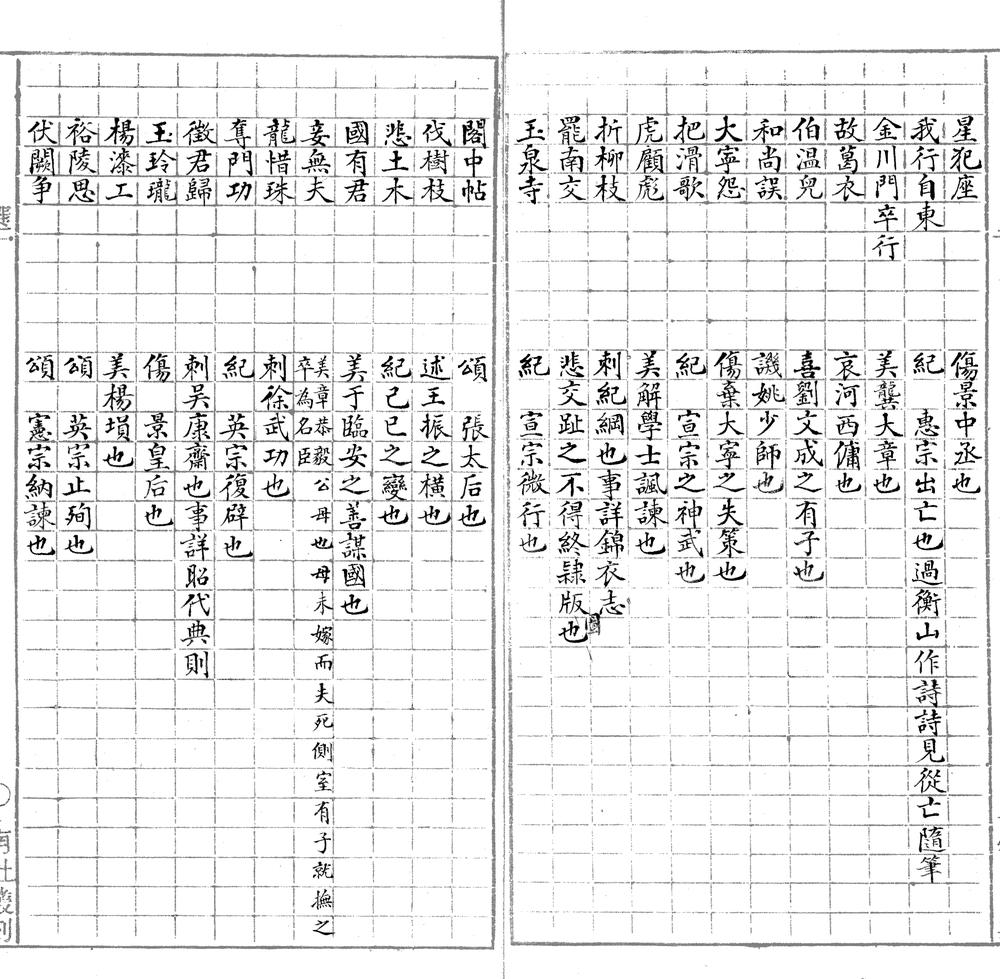 星犯座 傷景中丞也
我行自東 紀 惠宗出亡也過衡山作詩詩見從亡隨筆
金川門卒行 美龔大章也
故葛衣 哀河西傭也
伯溫兒 喜劉文成之有子也
和尚誤 譏姚少師也
大寧怨 傷棄大寧之失策也
把滑歌 紀 宣宗之神武也
虎顧彪 美解學士諷諫也
折柳枝 刺紀綱也事詳錦衣志
罷南交 悲交趾之不得終隸版圖也
玉泉寺 紀 宣宗微行也
閣中帖 頌 張太后也
伐樹枝 述王振之橫也
悲土木 紀己巳之變也
國有君 美于臨安之善謀國也
妾無夫 美章恭毅公母也母未嫁而夫死側室有子就撫之
卒為名臣
龍惜珠 刺徐武功也
奪門功 紀 英宗復辟也
徵君歸 刺吳康齋也事詳昭代典則
玉玲瓏 傷 景皇后也
楊漆工 美楊塤也
裕陵思 頌 英宗止殉也
伏闕爭 頌 憲宗納諫也
選
南社叢刻